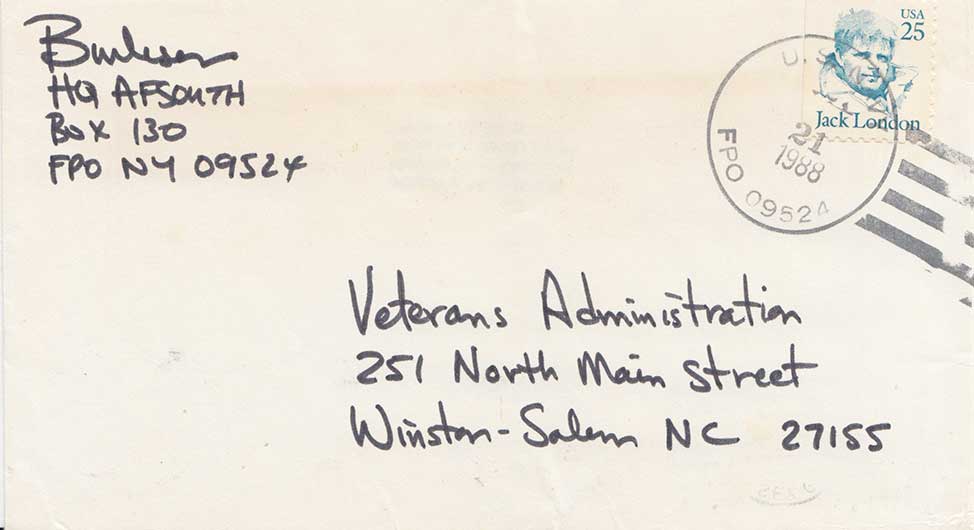 Burleson
HQ AFSOUTH
BOX 130
FPO NY 09524
USA
25
Jack London
U.S.
21
1988
FPO 09524
Veterans Administration
251 North Main Street
Winston-Salem NC 27155